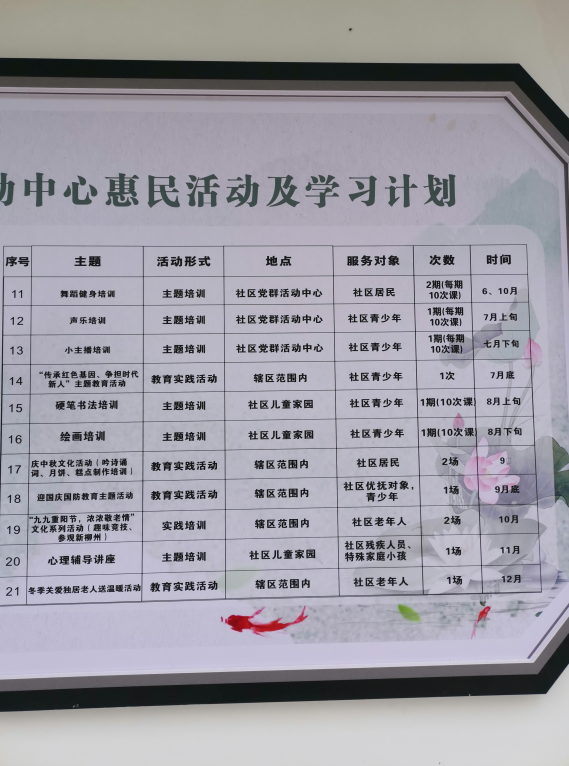 动中心惠民活动及学习计划
序号 主题 活动形式 地点 服务对象 次数 时间
11 舞蹈健身培训 主题培训 社区党群活动中心 社区居民 2期(每期 6、10月
10次课)
12 声乐培训 主题培训 社区党群活动中心 社区青少年 1期(每期 7月上旬
10次课)
13 小主播培训 主题培训 社区党群活动中心 社区青少年 1期(每期 七月下旬
10次课)
14 “传承红色基因、争担时代 教育实践活动 辖区范围内 社区青少年 1次 7月底
新人”主题教育活动
15 硬笔书法培训 主题培训 社区儿童家园 社区青少年 1期(10次课) 8月上旬
16 绘画培训 主题培训 社区儿童家园 社区青少年 1期(10次课) 8月下旬
17 庆中秋文化活动（吟诗诵 教育实践活动 辖区范围内 社区居民 2场 9
词、月饼、糕点制作培训）
18 迎国庆国防教育主题活动 教育实践活动 辖区范围内 社区优抚对象， 1场 9月底
青少年
19 “九九重阳节，浓浓敬老情” 实践培训 辖区范围内 社区老年人 2场 10月
文化系列活动（趣味竞技、
参观新柳州）
20 心理辅导讲座 主题培训 社区儿童家园 社区残疾人员、 1场 11月
特殊家庭小孩
21 冬季关爱独居老人送温暖活动 教育实践活动 辖区范围内 社区老年人 1场 12月